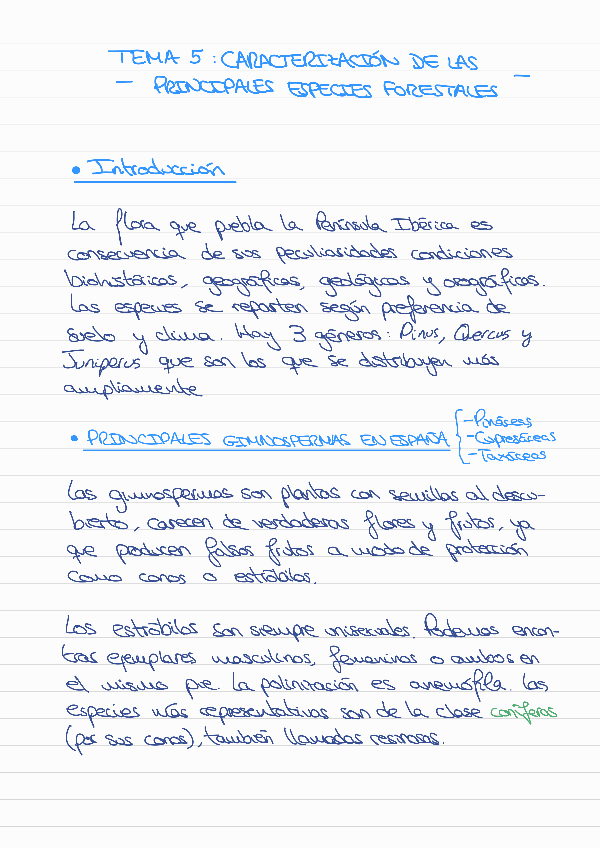 TEMA 5: CARACTERIZACIÓN DE LAS
— PRINCIPALES ESPECIES FORESTALES —
• Introducción
La flora que puebla la Península Ibérica es
consecuencia de sus peculiaridades condiciones
biohistóricas, geográficas, geológicas y orográficas.
Las especies se reparten según preferencia de
suelo y clima. Hay 3 géneros: Pinus, Quercus y
Juniperus que son los que se distribuyen más
ampliamente
• PRINCIPALES GIMNOSPERMAS EN ESPAÑA
- Pináceas
- Cupresáceas
- Taxáceas
Las gimnospermas son plantas con semillas al descu-
bierto, carecen de verdaderas flores y frutos, ya
que producen falsos frutos a modo de protección
como conos o estróbilos.
Los estróbilos son siempre unisexuales. Podemos encon-
trar ejemplares masculinos, femeninos o ambos en
el mismo pie. La polinización es anemófila. Las
especies más representativas son de la clase coníferas
(por sus conos), también llamadas resinosas.